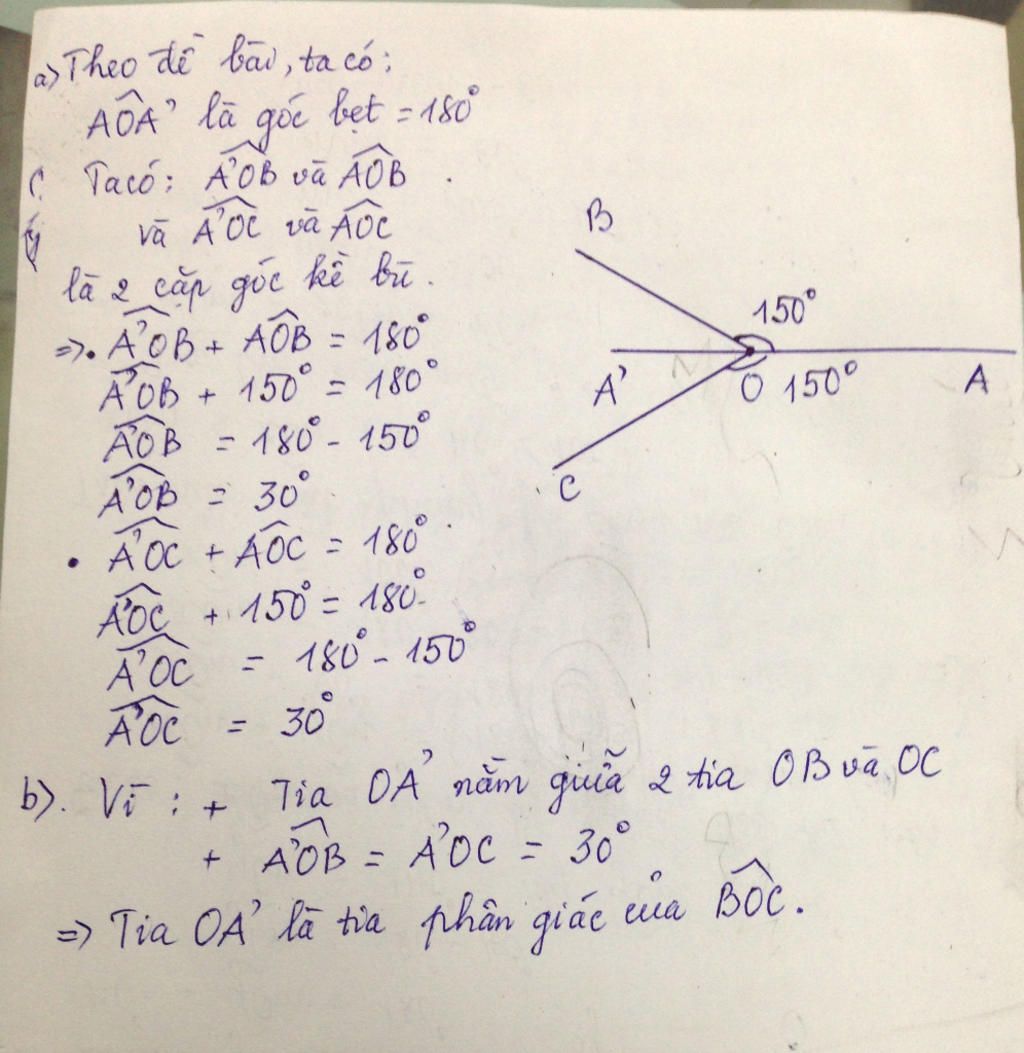 a) Theo đề bài, ta có:
AÔA' là góc bẹt = 180°
Ta có: A'OB và AOB
và A'OC và AOC
là 2 cặp góc kề bù.
=> • A'OB + AOB = 180°
A'OB + 150° = 180°
A'OB = 180° - 150°
A'OB = 30°
• A'OC + AOC = 180°
A'OC + 150° = 180°
A'OC = 180° - 150°
A'OC = 30°
b). Vì : + Tia OA' nằm giữa 2 tia OB và OC
+ A'OB = A'OC = 30°
=> Tia OA' là tia phân giác của BOC.
B
150°
A'
O
150°
A
C